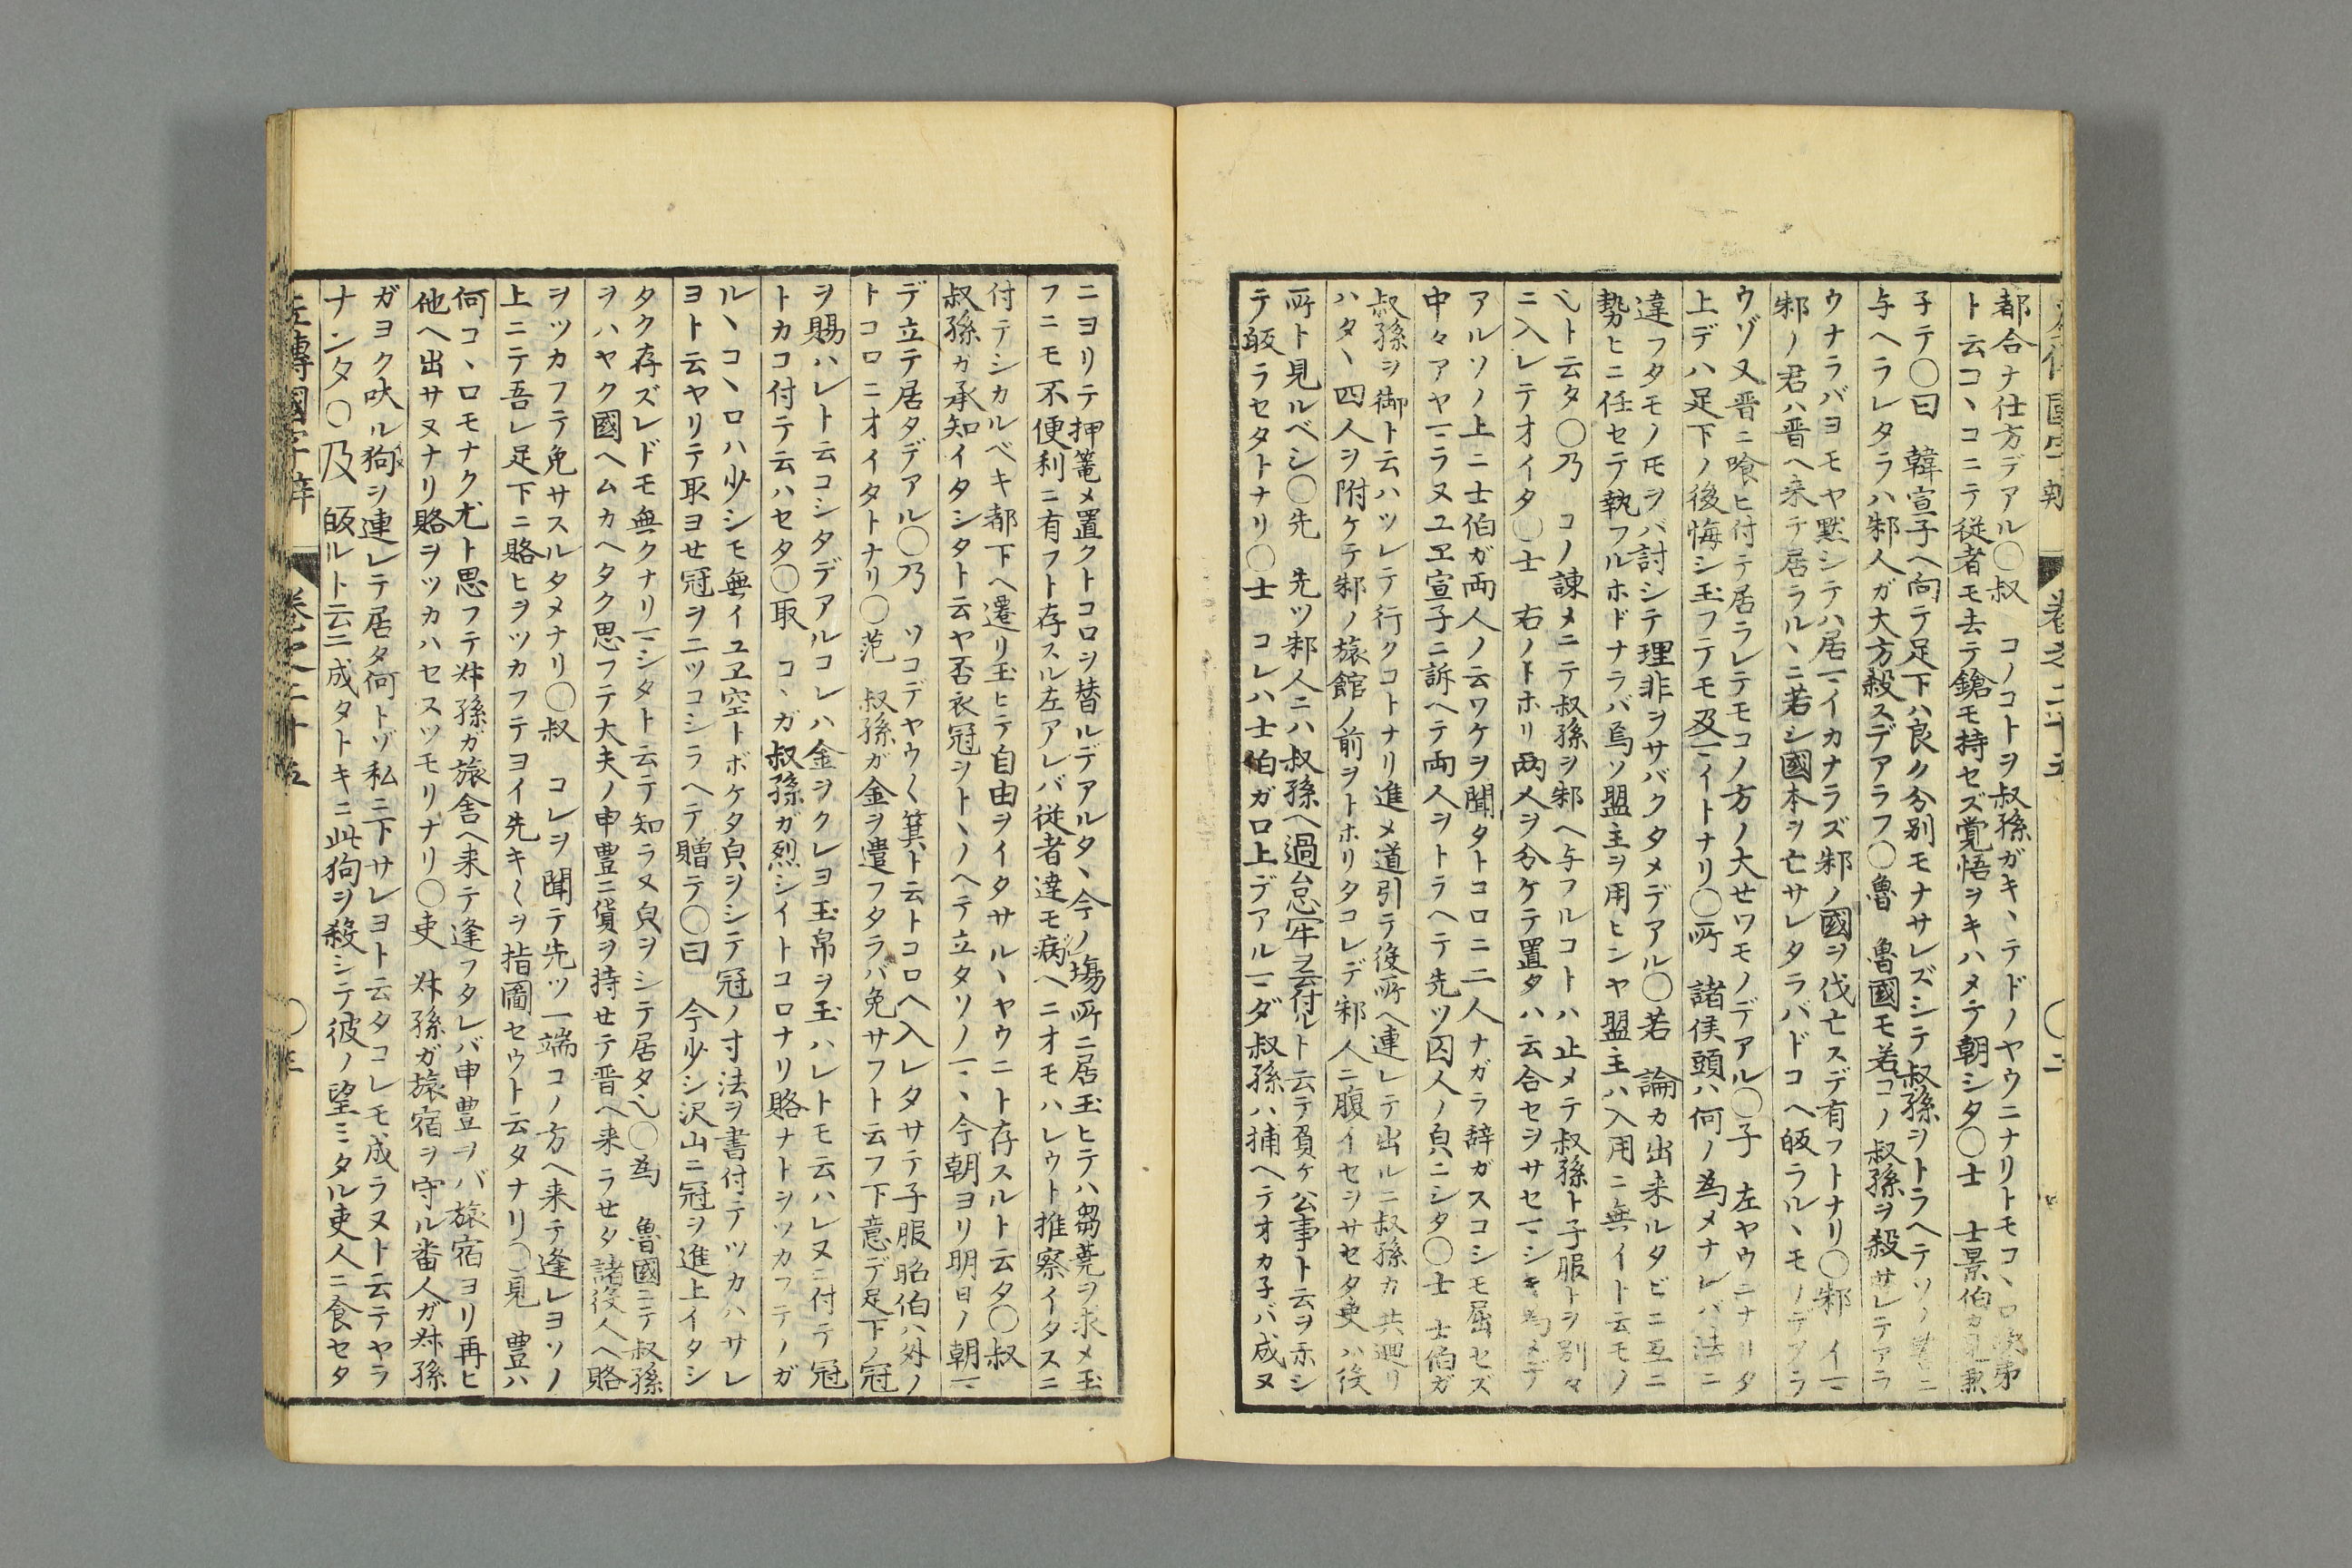 都合ナ仕方デアル〇叔　コノコトヲ叔孫ガキヽテドノヤウニナリトモコヽロ次第
ト云コヽコニテ従者モ去テ鎗モ持セズ覚悟ヲキハメテ朝シタ〇士　士景伯カ
子テ〇曰　韓宣子ヘ向テ足下ハ良ク分別モナサレズシテ叔孫ヲトラヘテソノ
与ヘラレタラハ邾人ガ大方殺スデアラフ〇魯　魯國モ若コノ叔孫ヲ殺サレテアラ
ウナラバヨモヤ黙シテハ居マイカナラズ邾ノ國ヲ伐亡スデ有フトナリ〇邾　イマ
邾ノ君ハ晋ヘ来テ居ラルヽニ若シ國本ヲ亡サレタラバドコヘ皈ラルヽモノデアラ
ウゾ又晋ニ喰ヒ付テ居ラレテモコノ方ノ大セワモノデアル〇子　左ヤウニナリタ
上デハ足下ノ後悔シ玉フテモ及マイトナリ〇所　諸侯頭ハ何ノ為メナレバ法ニ
違フタモノ𪜈ヲバ討シテ理非ヲサバクタメデアル〇若　論カ出来ルタビニ互ニ
勢ヒニ任セテ執フルホドナラバ烏ソ盟主ヲ用ヒシヤ盟主ハ入用ニ無イト云モノ
也ト云タ〇乃　コノ諌メニテ叔孫ヲ邾ヘ与フルコトハ止メテ叔孫ト子服トヲ別々
ニ入レテオイタ〇士　右ノトホリ両人ヲ分ケテ置タハ云合セヲサセマシキ為メデ
アルソノ上ニ士伯ガ両人ノ云ワケヲ聞タトコロニ二人ナガラ辞ガスコシモ屈セズ
中々アヤマラヌユヱ宣子ニ訴ヘテ両人ヲトラヘテ先ツ囚人ノ㒵ニシタ〇士　士伯ガ
叔孫ヲ御ト云ハツレテ行クコトナリ進メ道引テ役所ヘ連レテ出ルニ叔孫カ共廻リ
ハタヽ四人ヲ附ケテ邾ノ旅館ノ前ヲトホリタコレデ邾人ニ腹イセヲサセタ吏ハ役
所ト見ルベシ〇先　先ツ邾人ニハ叔孫ヘ過怠牢ヲ云付ルト云テ負ケ公事ト云ヲ示シ
テ皈ラセタトナリ〇士　コレハ士伯ガロ上デアルマダ叔孫ハ捕ヘテオカ子バ成ヌ
ニヨリテ押篭メ置クトコロヲ替ルデアルタヽ今ノ塲所ニ居玉ヒテハ芻蕘ヲ求メ玉
フニモ不便利ニ有フト存スル左アレバ従者達モ病ヘニオモハレウト推察イタスニ
付テシカルベキ都下ヘ遷リ玉ヒテ自由ヲイタサルヽヤウニト存スルト云タ〇叔
叔孫カ承知イタシタト云ヤ否衣冠ヲトヽノヘテ立タソノマヽ今朝ヨリ明日ノ朝マ
デ立テ居タデアル〇乃　ソコデヤウ〱箕ト云トコロヘ入レタサテ子服昭伯ハ外ノ
トコロニオイタトナリ〇范　叔孫ガ金ヲ遣フタラバ免サフト云フ下意デ足下ノ冠
ヲ賜ハレト云コシタデアルコレハ金ヲクレヨ玉帛ヲ玉ハレトモ云ハレヌニ付テ冠
トカコ付テ云ハセタ〇取　コヽガ叔孫ガ烈シイトコロナリ賂ナトヲツカフテノガ
ルヽコヽロハ少シモ無イユヱ空トボケタ㒵ヲシテ冠ノ寸法ヲ書付テツカハサレ
ヨト云ヤリテ取ヨせ冠ヲニツコシラヘテ贈テ〇曰　今少シ沢山ニ冠ヲ進上イタシ
タク存ズレドモ無クナリマシタト云テ知ラヌ㒵ヲシテ居タ也〇為　魯國ニテ叔孫
ヲハヤク國ヘムカヘタク思フテ大夫ノ申豊ニ貨ヲ持せテ晋ヘ来ラせタ諸役人ヘ賂
ヲツカフテ免サスルタメナリ〇叔　コレヲ聞テ先ツ一端コノ方ヘ来テ逢レヨソノ
上ニテ吾レ足下ニ賂ヒヲツカフテヨイ先キ〱ヲ指圖セウト云タナリ〇見　豊ハ
何コヽロモナク尤ト思フテ叔孫ガ旅舎ヘ来テ逢フタレバ申豊ヲバ旅宿ヨリ再ヒ
他ヘ出サヌナリ賂ヲツカハセスツモリナリ〇吏　叔孫ガ旅宿ヲ守ル番人ガ叔孫
ガヨク吠ル狗ヲ連レテ居タ何トゾ私ニ下サレヨト云タコレモ成ラヌト云テヤラ
ナンタ〇及　皈ルト云ニ成タトキニ此狗ヲ殺シテ彼ノ望ミタル吏人ニ食セタ
左傳國字辯　巻之二十五